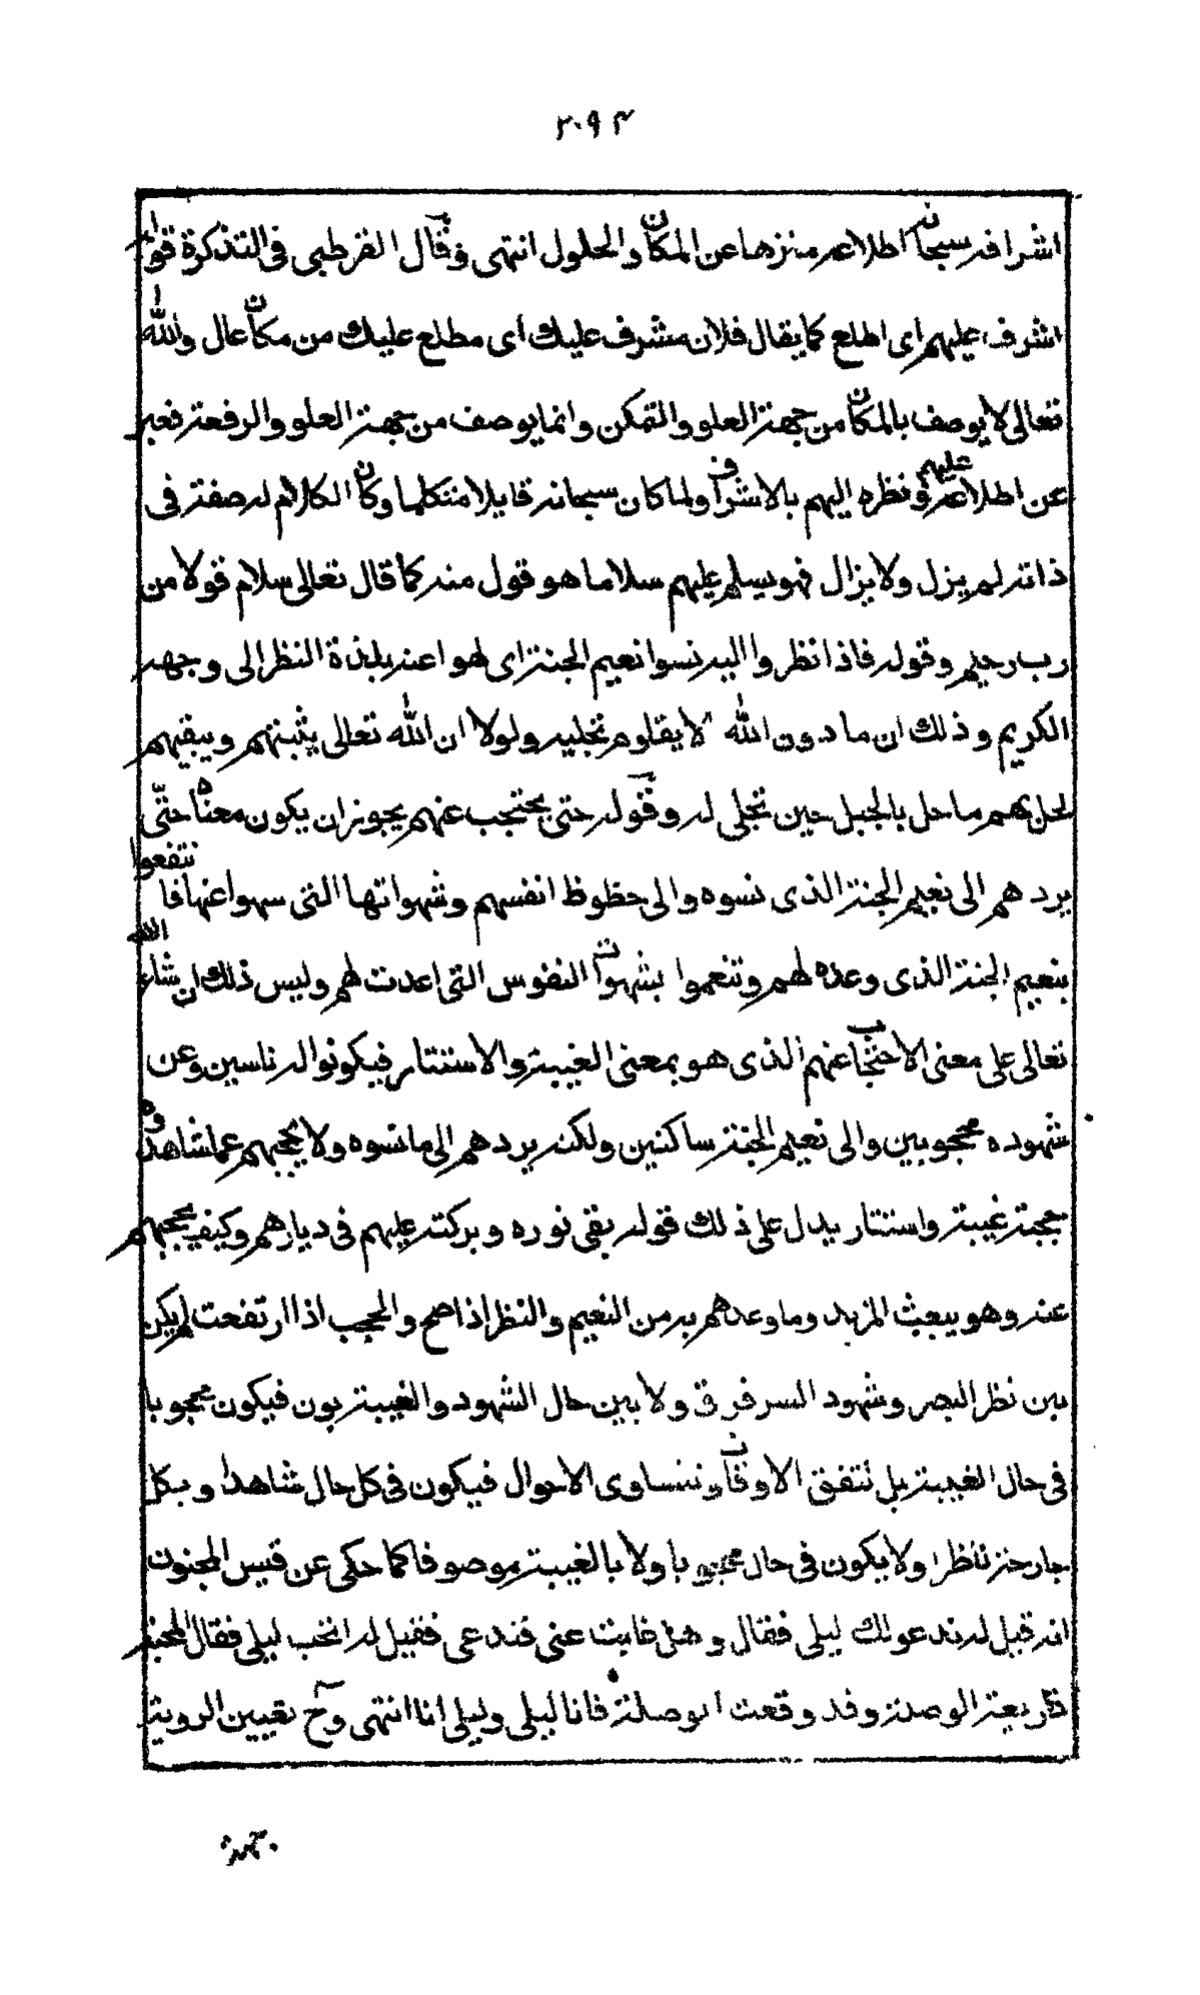 ٢٠٩٣
اشرافه سبحانه اطلاعه منزها عن المكان والحلول انتهى وقال القرطبي فى التذكرة قوله
اشرف عليهم اى اطلع كما يقال فلان مشرف عليك اى مطلع عليك من مكان عال والله
تعالى لا يوصف بالمكان من جهة العلو والتمكن وانما يوصف من جهة العلو والرفعة فعبر
عن اطلاعه عليهم ونظره اليهم بالاشراف ولما كان سبحانه قايلا متكلما وكان الكلام له صفة فى
ذاته لم يزل ولا يزال فهو يسلم عليهم سلاما هو قول منه كما قال تعالى سلام قولا من
رب رحيم وقوله فاذا نظروا اليه نسوا نعيم الجنة اى لهوا عنه بلذة النظر الى وجهه
الكريم وذلك ان ما دون الله لا يقاوم تجليه ولولا ان الله تعالى يثبتهم ويبقيهم
لحل بهم ما حل بالجبل حين تجلى له وقوله حتى يحتجب عنهم يجوز ان يكون معناه حتى
يردهم الى نعيم الجنة الذى نسوه والى حظوظ انفسهم وشهواتها التى سهوا عنها فانتفعوا
بنعيم الجنة الذى وعده لهم وتنعموا بشهوات النفوس التى اعدت لهم وليس ذلك ان شاء الله
تعالى على معنى الاحتجاب عنهم الذى هو بمعنى الغيبة والاستتار فيكونوا له ناسين وعن
شهوده محجوبين والى نعيم الجنة ساكنين ولكنه يردهم الى ما نسوه ولا يحجبهم عما شاهدوه
حجبة غيبة واستتار يدل على ذلك قوله بقى نوره وبركته عليهم فى ديارهم وكيف يحجبهم
عنه وهو يبعث المزيد وما وعدهم به من النعيم والنظر اذا صح والحجب اذا ارتفعت لم يكن
بين نظر البصر وشهود السر فرق ولا بين حال الشهود والغيبة بون فيكون محجوبا
فى حال الغيبة بل تتفق الاوقات وتتساوى الاحوال فيكون فى كل حال شاهدا وبكل
جارحة ناظرا ولا يكون فى حال محجوبا ولا بالغيبة موصوفا كما حكى عن قيس المجنون
انه قيل له ندعو لك ليلى فقال وهل غابت عنى فتدعى فقيل له اتحب ليلى فقال المحبة
ذريعة الوصلة وقد وقعت الوصلة فانا ليلى وليلى انا انتهى وح تقيين الروية